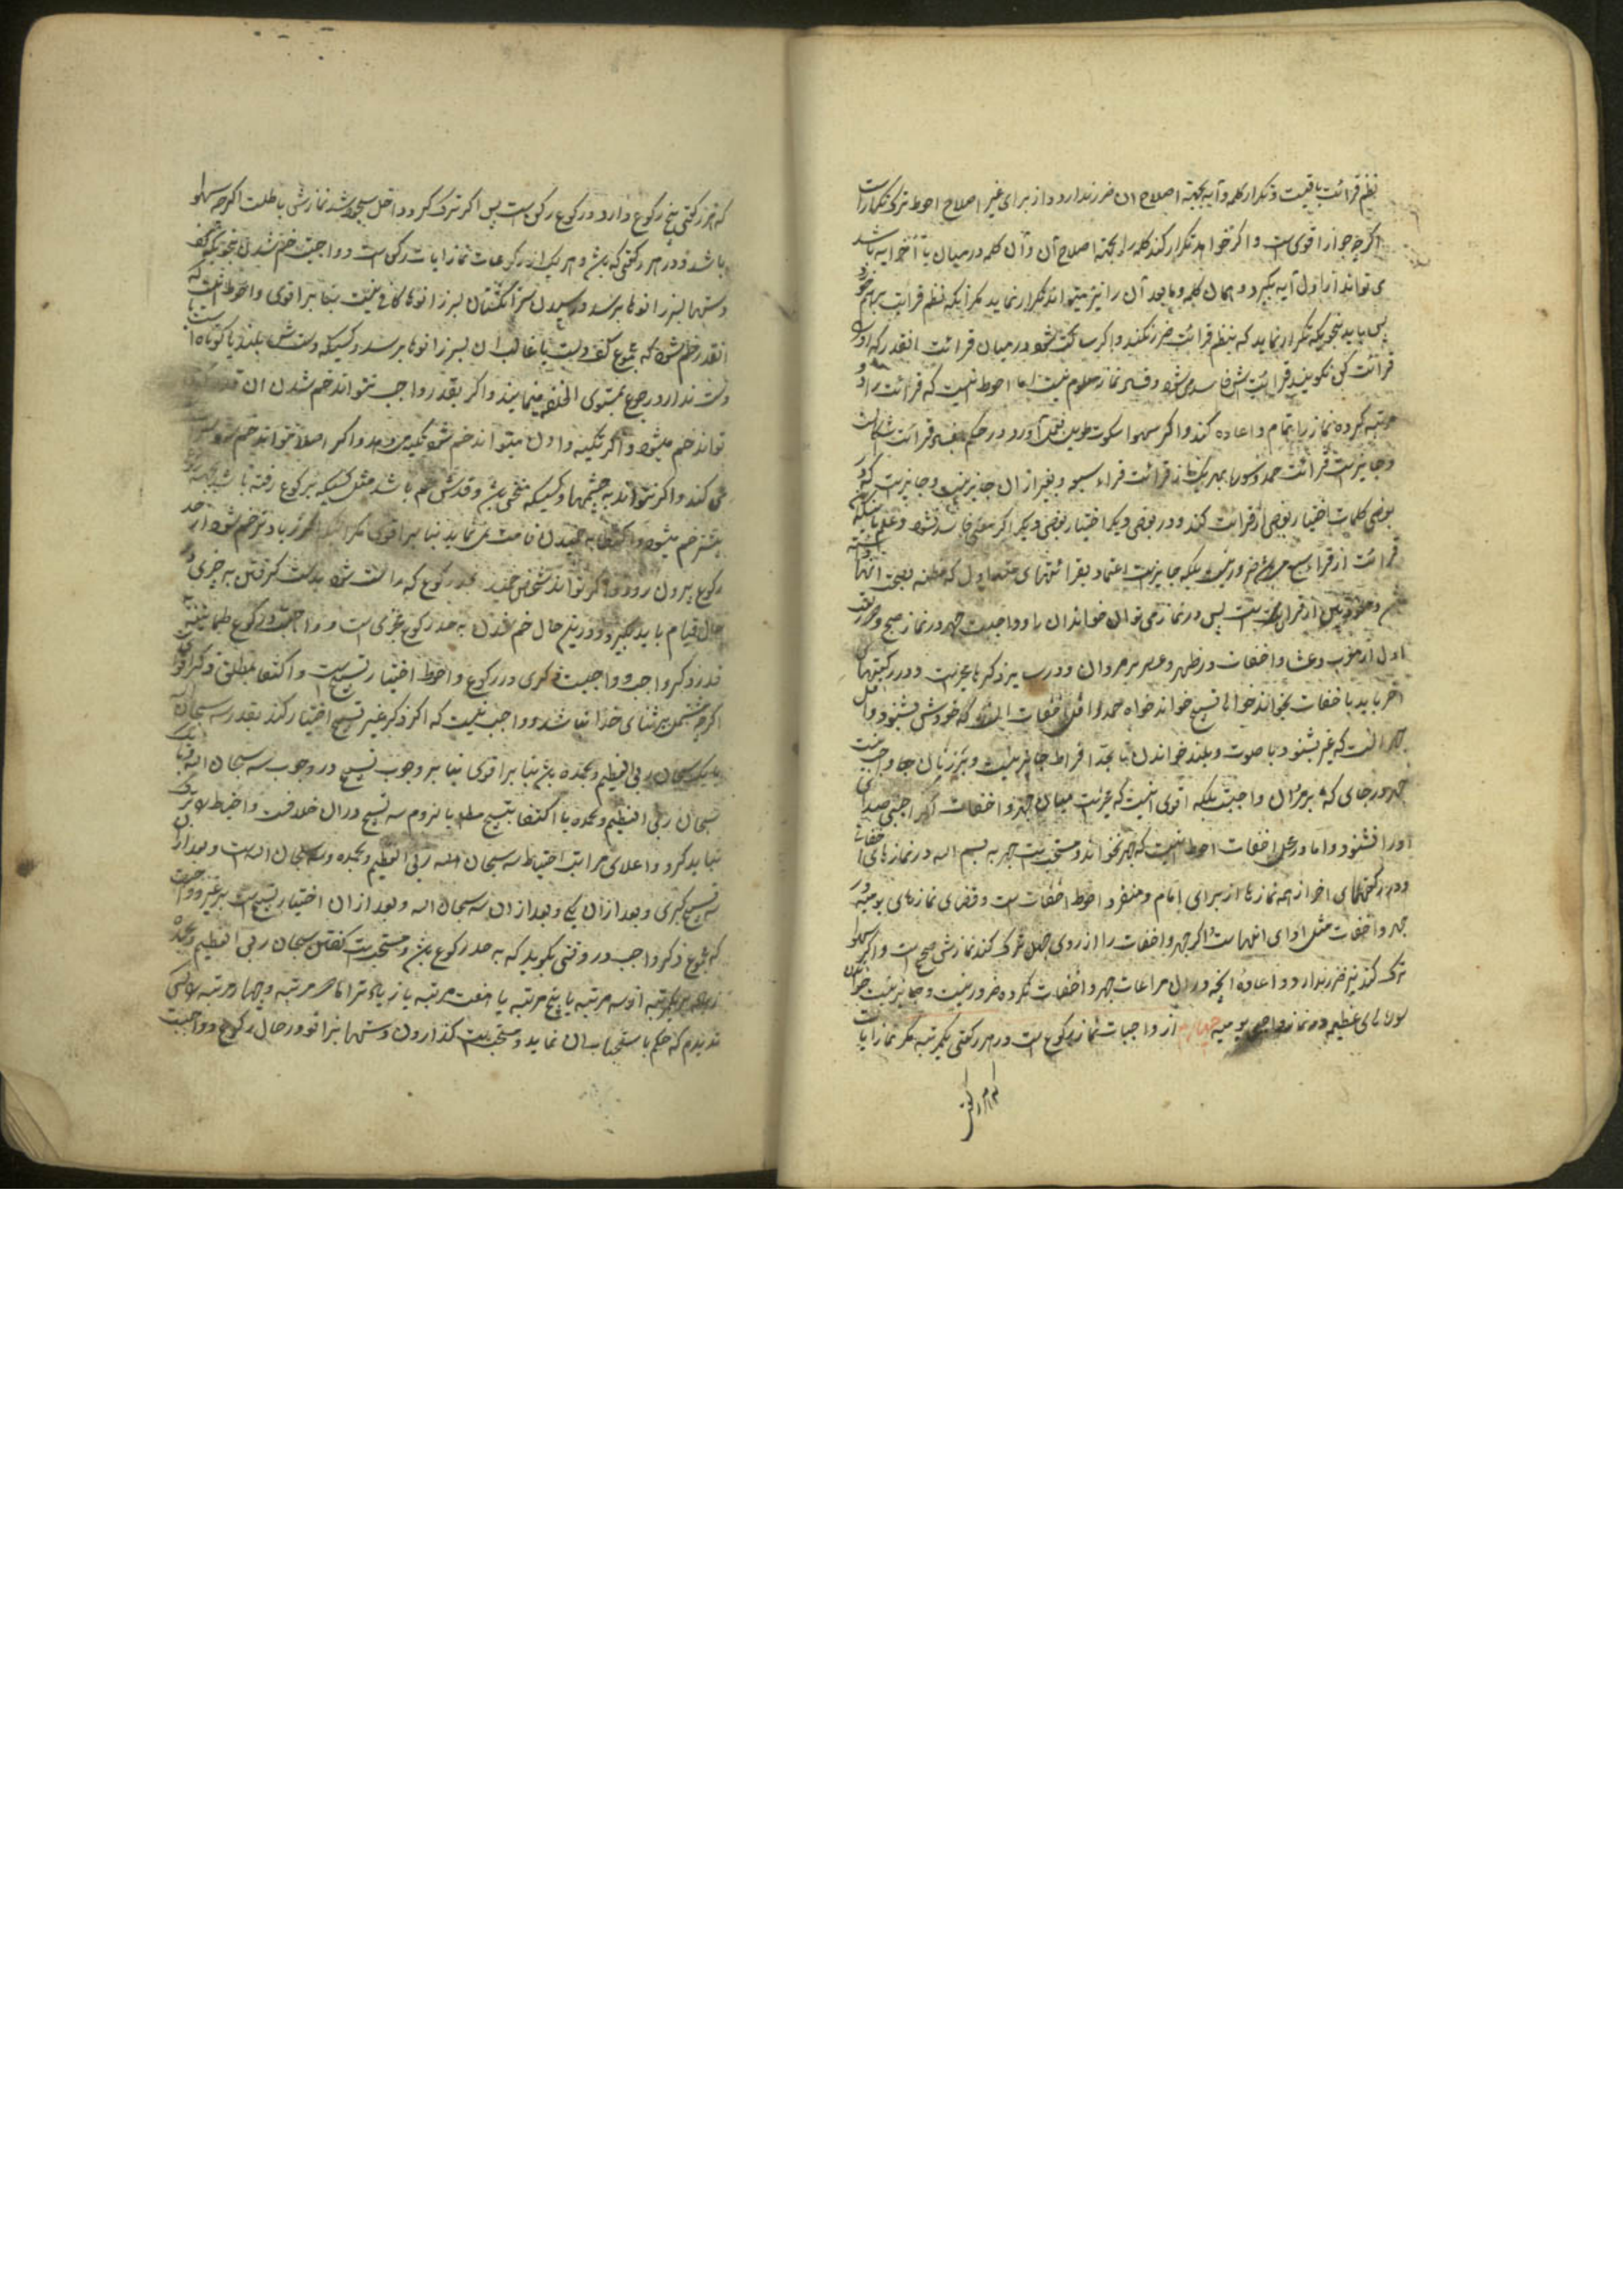 نظم قرائت باقیست و تکرار کلمه و آیه بجهة اصلاح آن ضرر ندارد و از برای غیر اصلاح احوط ترک تکرار است
اگر چه جواز اقوی ست و اگر خواهد تکرار کند کلمه را بجهة اصلاح آن و آن کلمه در میان یا آخر آیه باشد
می تواند از اول آیه بگیرد و همان کلمه و مابعد آن را نیز میتواند تکرار نماید مگر آنکه نظم قرائت بر هم خورد
پس باید بنحوی که تکرار نماید که بنظم قرائت ضرر نکند و اگر ساکت شود در میان قرائت انقدر که او را
قرائت کن نگویند قرائتش فاسد می شود و فساد نماز معلوم نیست اما احوط اینست که قرائت را
کرده نماز را تمام و اعاده کند و اگر سهوا سکوت طویل بعمل آورد در حکم بفساد قرائت اشکالست
و جایز است قرائت حمد و سوره بهر یک از قرائت قراء سبعه و بغیر از آن جایز نیست و جایز است که در
بعضی کلمات اختیار بعضی از قرائت کند و در بعضی دیگر اختیار بعضی دیگر اگر معنی فاسد نشود و علم باینکه
قرائت از قراء سبع ضرور نیست بلکه جایز است اعتماد بقرائتهای متداول که مظنه بصحت انها
پس در نماز می توان خواند آن را و واجبست جهر در نماز صبح و دو رکعت
اول از مغرب و عشا و اخفات در ظهر و عصر بر مردان و در سایر ذکرها مخیر است و در رکعتهای
آخر باید باخفات بخواند خواه تسبیح خواند خواه حمد و اقل اخفات اینست که خودش بشنود و اقل
جهر آنست که غیر بشنود با صوت و بلند خواندن تا بحد افراط جایز نیست و بر زنان جهر واجب نیست
جهر در جای که بر مردان واجبست بلکه اقوی اینست که مخیر است میان جهر و اخفات اگر اجنبی صدای
او را نشنود و اما در محل اخفات احوط اینست که جهر نخواند و مستحب است جهر به بسم الله در نمازهای اخفات
و در رکعتهای اخر از همه نمازها از برای امام و منفرد احوط اخفات ست و قضای نمازهای یومیه در
جهر و اخفات مثل ادای انهاست و اگر جهر و اخفات را از روی جهل ترک کند نمازش صحیح است و اگر سهوا
ترک کند نیز ضرر ندارد و اعادهٔ آنچه در آن مراعات جهر و اخفات نکرده ضرور نیست و جایز نیست خواندن
سورهای عظیمه در نماز واجبی یومیه چهارم از واجبات نماز رکوع است در هر رکعتی یکمرتبه مگر نماز آیات
که هر رکعتی
که هر رکعتی پنج رکوع دارد و رکوع رکن ست پس اگر ترک کرد و داخل سجود شد نمازش باطلست اگر چه سهوا
باشد و در هر رکعتی که باشد و هر یک از رکوعات نماز آیات رکن ست و واجبست خم شدن بنحوی که کف
دستها بسر زانوها برسد و رسیدن سر انگشتان بسر زانوها کافی نیست بنا بر اقوی و احوط اینست که
انقدر خم شود که مجموع کف دست یا غالب آن بسر زانوها برسد و کسیکه دستش بلند یا کوتاه است یا
دست ندارد رجوع بمستوی الخلقه مینماید و اگر بقدر واجب نتواند خم شدن آن قدر که
تواند خم میشود و اگر تکیه دادن میتواند خم شود تکیه می دهد و اگر اصلا نتواند خم شود بسر
می کند و اگر نتواند به چشمها و کسیکه منحنی باشد و قدش خم باشد مثل کسیکه برکوع رفته باشد
بیشتر خم میشود و اکتفا به خمیدن قامت می نماید بنا بر اقوی مگر زیادتر خم شود از حد
رکوع بیرون رود و اگر تواند شخص خمیده که راست شود بدست گرفتن به چیزی در
حال قیام باید بگیرد و در این حال خم شدن به حد رکوع مجزی ست و واجبست در رکوع طمانینه به
قدر ذکر واجب و واجبست ذکری در رکوع و احوط اختیار تسبیح ست و اکتفا بمطلق ذکر اقوی
اگر چه مشتمل بر ثنای خدا نباشد و واجب نیست که اگر ذکر غیر تسبیح اختیار کند بقدر سه سبحان الله
یا یک سبحان ربی العظیم و بحمده باشد بنا بر اقوی بنا بر وجوب تسبیح در وجوب سه سبحان الله یا یک
سبحان ربی العظیم و بحمده یا اکتفا بتسبیح مطلقا یا لزوم سه تسبیح در آن خلافست و احتیاط را ترک
نباید کرد و اعلای مراتب احتیاط سه سبحان الله ربی العظیم و بحمده و سه سبحان الله ست و بعد از آن
سه تسبیح کبری و بعد از آن یکی و بعد از آن سه سبحان الله و بعد از آن اختیار تسبیح ست بر غیر و واجبست
که مجموع ذکر واجب در وقتی بگوید که به حد رکوع باشد و مستحب ست گفتن سبحان ربی العظیم و بحمده
زیاده بر یکمرتبه از سه مرتبه یا پنج مرتبه یا هفت مرتبه یا زیادتر اما دو مرتبه و چهار مرتبه را کسی
ندیدم که حکم باستحباب آن نماید و مستحب ست گذاردن دستها بزانو در حال رکوع و واجبست